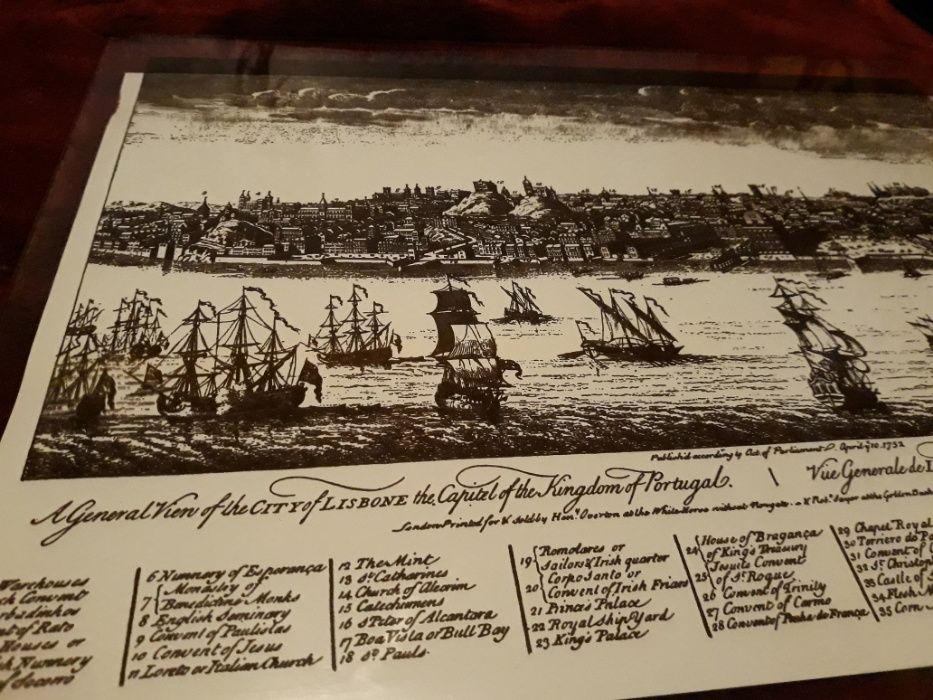 Publish'd according by Act of Parliament April ye 10. 1752
A General View of the CITY of LISBONE the Capital of the Kingdom of Portugal.
Vüe Generale de
London Printed for & Sold by Heny. Overton at the White Horse without Newgate. & Robt. Sayer at the Golden Buck
Warehouses
Convent
of Rato
Houses or
Nunnery
of Socorro
6 Nunnery of Esperança
7 Monastry of
Benedictine Monks
8 English Seminary
9 Convent of Paulistas
10 Convent of Jesus
11 Loreto or Italian Church
12 The Mint
13 St. Catharines
14 Church of Alecrim
15 Catechumens
16 St Peter of Alcantara
17 Boa Vista or Bull Bay
18 St. Pauls.
19 Romolares or
Sailors & Irish quarter
20 Corpo Santo or
Convent of Irish Friars
21 Princes Pallace
22 Royal Ship Yard
23 King's Palace
24 House of Bragança
of King's Treasury
25 Jesuits Convent
of St. Roque
26 Convent of Trinity
27 Convent of Carmo
28 Convent of Penha de França
29 Chapel Royal
30 Torriero do
31 Convent of
32 St. Christop
33 Castle of
34 Flesh
35 Corn